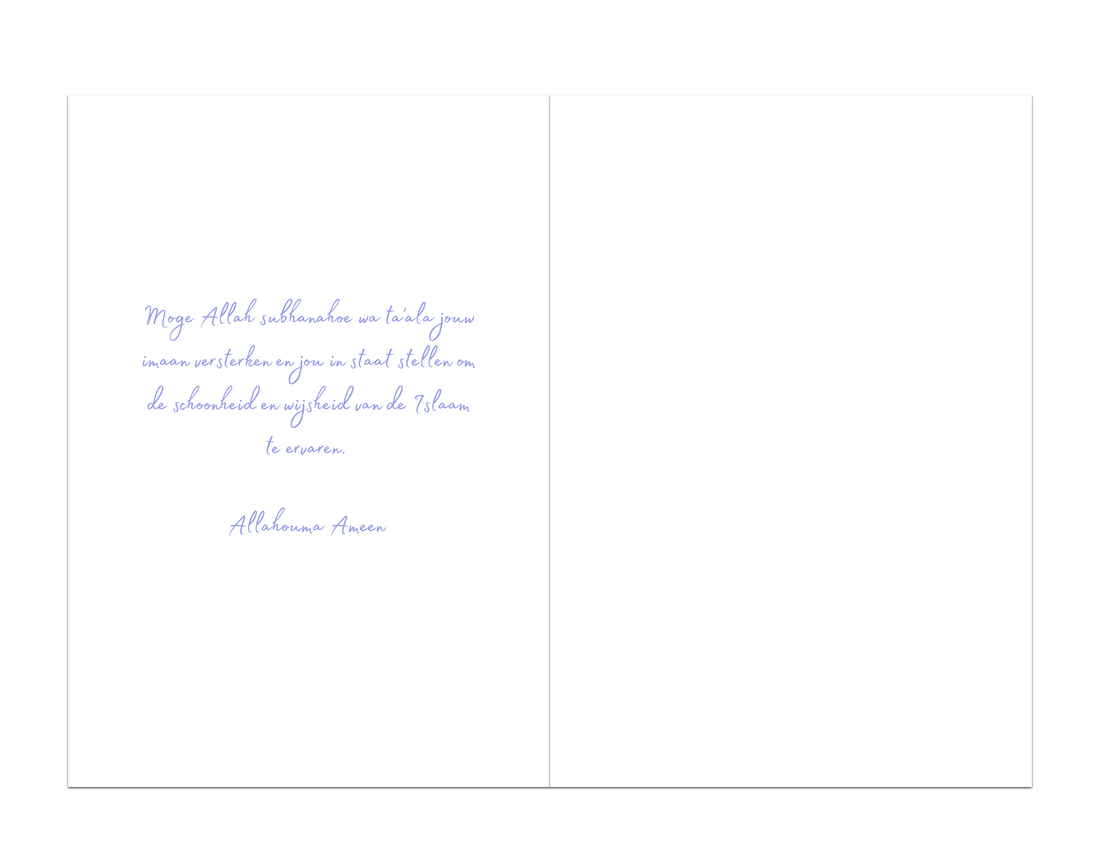 Moge Allah subhanahoe wa ta'ala jouw
imaan versterken en jou in staat stellen om
de schoonheid en wijsheid van de Islaam
te ervaren.
Allahouma Ameen